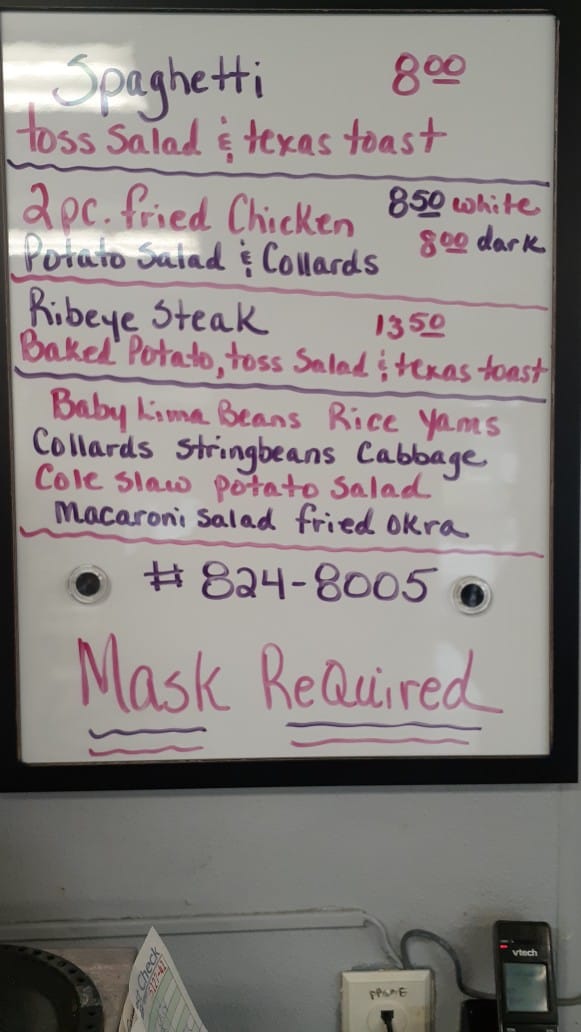 Spaghetti 8.00
toss Salad & texas toast
2pc. fried Chicken 8.50 white
8.00 dark
Potato Salad & Collards
Ribeye Steak 13.50
Baked Potato, toss Salad & texas toast
Baby Lima Beans Rice Yams
Collards Stringbeans Cabbage
Cole Slaw potato Salad
Macaroni Salad fried okra
# 824-8005
Mask Required
Check
vtech